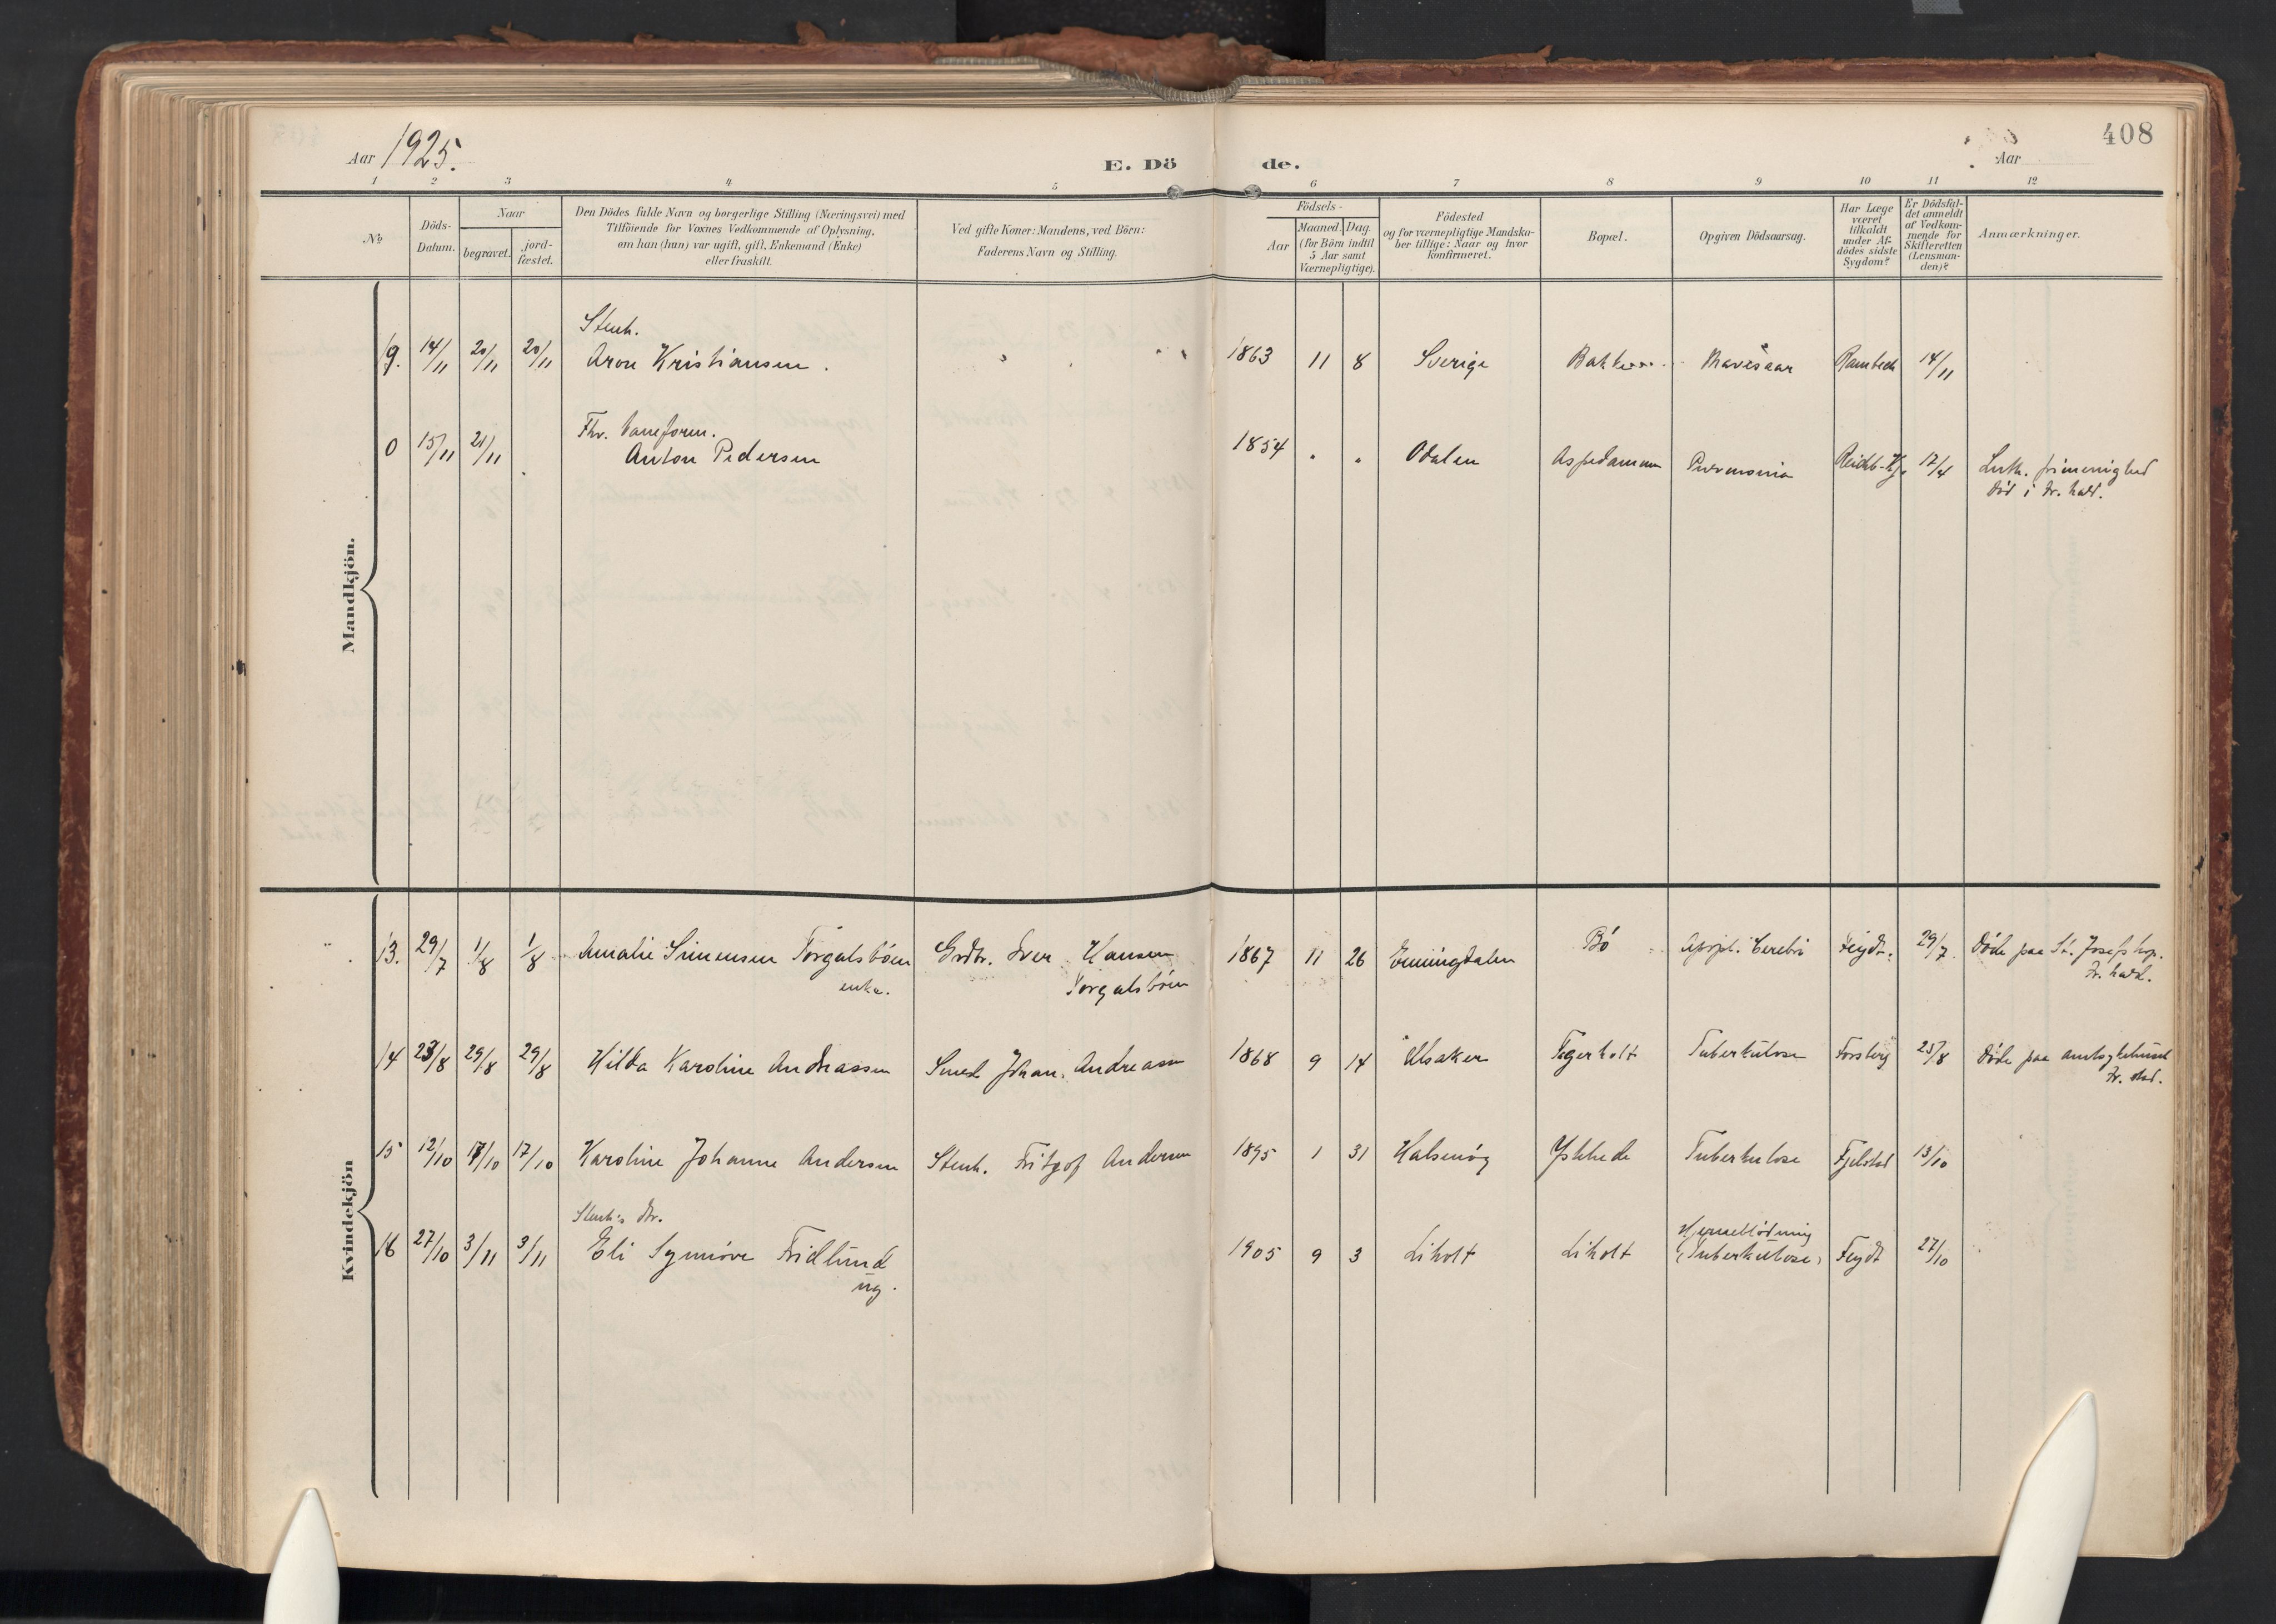 Aar 1925.
E. Döde.
Aar
408
1 2 3 4 5 6 7 8 9 10 11 12
No
Döds-Datum.
Naar
begravet.
jord-fæstet.
Den Dödes fulde Navn og borgerlige Stilling (Næringsvei) med
Tilföiende for Voxnes Vedkommende af Oplysning,
om han (hun) var ugift, gift, Enkemand (Enke)
eller fraskilt.
Ved gifte Koner: Mandens, ved Börn:
Faderens Navn og Stilling.
Födsels-
Aar
Maaned. Dag.
(for Börn indtil
5 Aar samt
Værnepligtige).
Födested
og for værnepligtige Mandska-
ber tillige: Naar og hvor
konfirmeret.
Bopæl.
Opgiven Dödsaarsag.
Har Læge
været
tilkaldt
under Af-
dödes sidste
Sygdom?
Er Dödsfal-
det anmeldt
af Vedkom-
mende for
Skifteretten
(Lensman-
den)?
Anmærkninger.
Mandkjön.
Stenh.
19. 14/11 20/11 20/11 Aron Kristiansen. 1863 11 8 Sverige Bakke Mavesaar Rambech 14/11
Fhv. baneform.
0 15/11 21/11 Anton Pedersen 1854 " " Odalen Aspedammen Pnevmonia 17/11 Luth. frimenighed
død i Fr.hald.
Kvindekjön
13. 29/7 1/8 1/8 Amalie Simensen Torgalsbøen Grdbr. Iver Hansen 1867 11 26 Enningdalen Bö Apopl. Cerebri Feydt. 29/7 Døde paa St. Josefs hosp.
enke. Torgalsbøen Fr.hald.
14 23/8 29/8 29/8 Hilda Karoline Andreassen Smed Johan. Andreasen 1868 9 14 Ulsaker Tegerholt Tuberkulose Forsberg 25/8 Døde paa amtsykehuset
Fr. stad.
15 12/10 17/10 17/10 Karoline Johanne Andersen Stenh. Fritjof Andersen 1895 1 31 Halsenög Yshede Tuberkulose Fjelstad 13/10
Stenh's dtr.
16 27/10 3/11 3/11 Eli Synnöve Fridlund 1905 9 3 Liholt Liholt Hjerneblødning (Tuberkulose) Feydt 27/10
ug.